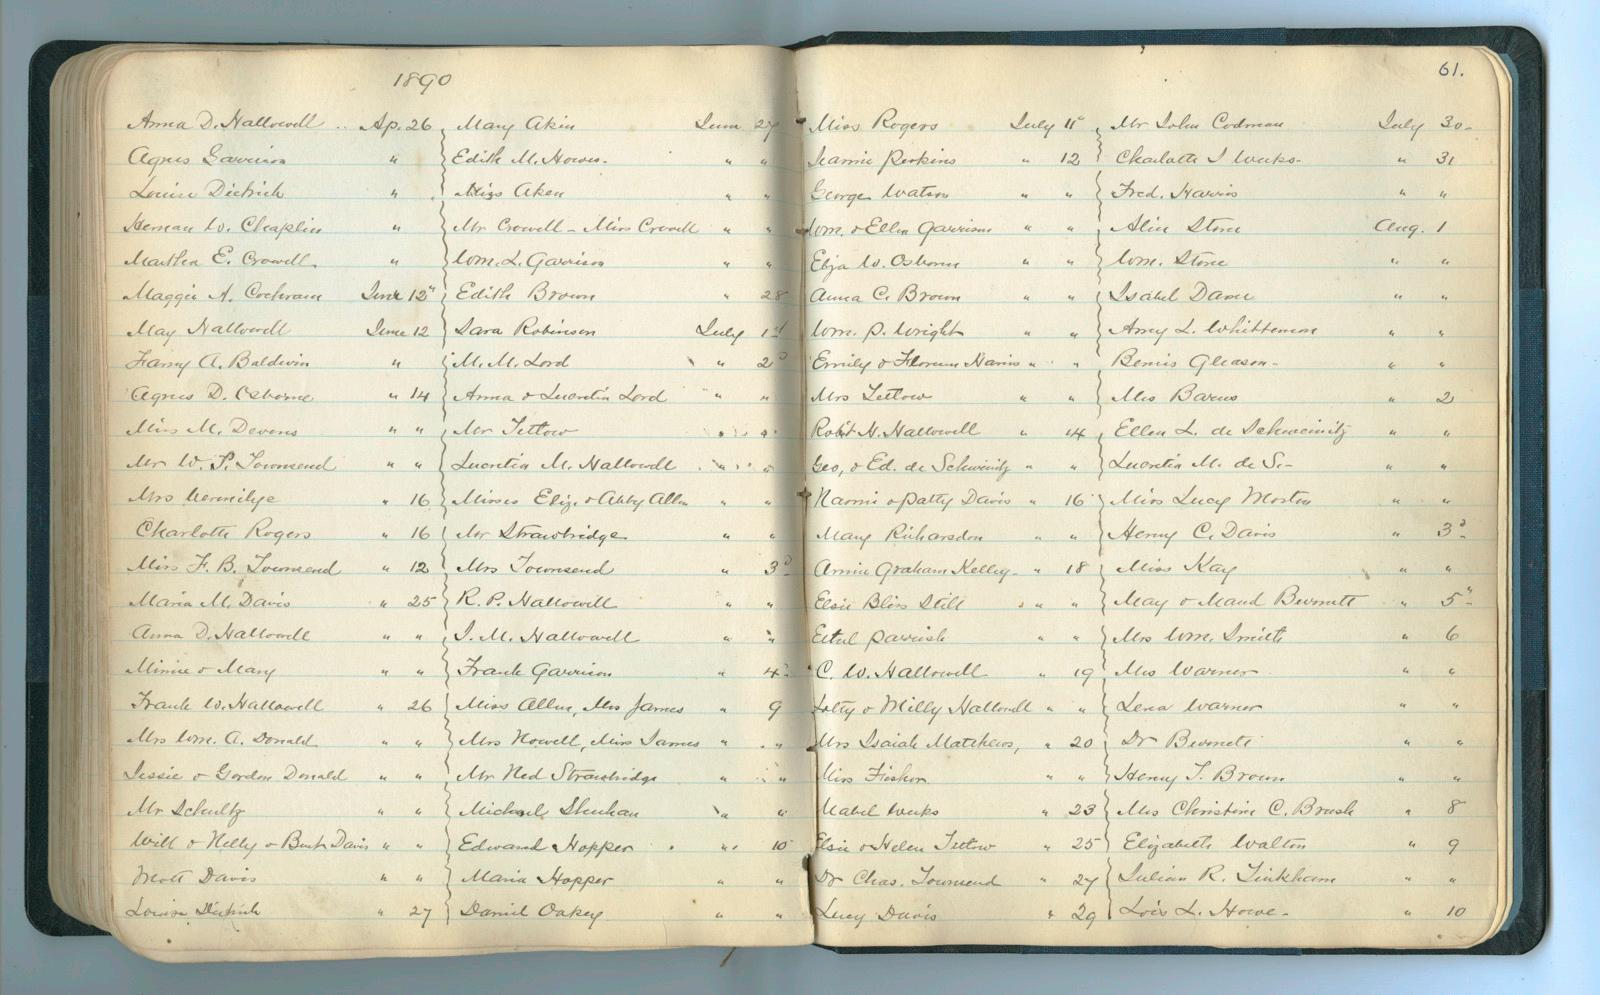 1890
Anna D. Hallowell .. Ap. 26
Agnes Garrison "
Louise Dietrich "
Heman W. Chaplin "
Martha E. Crowell "
Maggie A. Cochram June 12"
May Hallowell June 12
Fanny A. Baldwin "
Agnes D. Osborne " 14
Miss M. Devens " "
Mr W. P. Townsend " "
Mrs Vermilye " 16
Charlotte Rogers " 16
Miss F. B. Townsend " 12
Maria M. Davis " 25
Anna D. Hallowell " "
Minnie & Mary " "
Frank W. Hallowell " 26
Mrs Wm. A. Donald " "
Jessie & Gordon Donald " "
Mr Schultz " "
Will & Nelly & Davis " "
Mott Davis " "
Louise Dietrich " 27
Mary Akin June 27
Edith M. Howes. " "
Miss Aken " "
Mr Crowell - Miss Crowell " "
Wm. L. Garrison " "
Edith Brown " 28
Sara Robinson July 1st
M. M. Lord " 2d
Anna & Lucretia Lord " "
Mr Tetlow " "
Lucretia M. Hallowell " "
Misses Eliz. & Abby Allen " "
Mr Strawbridge " "
Mrs Townsend " 3d
R. P. Hallowell " "
J. M. Hallowell " "
Frank Garrison " 4"
Miss Allen, Mrs James " 9
Mrs Howell, Miss James " "
Mr Ned Strawbridge " "
Michael Shehan " "
Edward Hopper " 10
Maria Hopper " "
Daniel Oakey " "
61.
Miss Rogers July 11"
Jeannie Perkins " 12
George Watson " "
Wm. & Ellen Garrison " "
Eliza W. Osborne " "
Anna C. Brown " "
Wm. P. Wright " "
Emily & Florence Harris " "
Mrs Tetlow " "
Robt H. Hallowell " 14
Geo, & Ed. de Schweinitz " "
Nannie & Patty Davis " 16
Mary Richardson " "
Annie Graham Kelley - " 18
Elsie Bliss Still " "
Ethel Parrish " "
C. W. Hallowell " 19
Lotty & Milly Hallowell " "
Mrs Isaiah Matthews, " 20
Miss Fisher " "
Mabel Weeks " 23
Elsie & Helen Tetlow " 25
Dr Chas. Townsend " 27
Lucy Davis " 29
Mr John Codman July 30-
Charlotte I Weeks- " 31
Fred. Harris " "
Alice Stone Aug. 1
Wm. Stone " "
Isabel Dame " "
Amy L. Whittemore " "
Bemis Gleason- " "
Mrs Barus " 2
Ellen L. de Schweinitz " "
Lucretia M. de S.- " "
Miss Lucy Morton " "
Henry C. Davis " 3d
Miss Kay " "
May & Maud Bennett " 5"
Mrs Wm. Smith " 6
Mrs Warner " "
Lena Warner " "
Dr Bennett " "
Henry T. Brown " "
Mrs Christine C. Brush " 8
Elizabeth Walton " 9
Julian R. Tinkham " "
Lois L. Howe- " 10